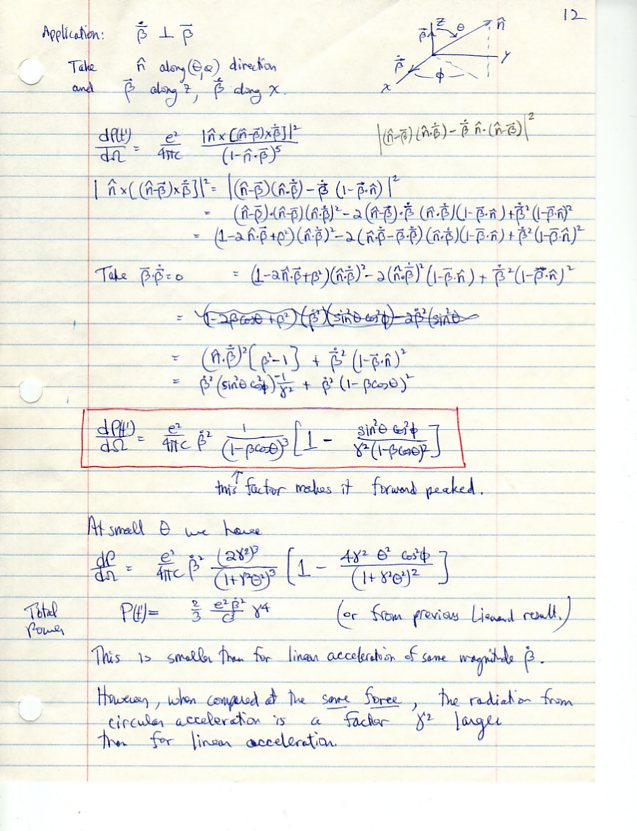 12
Application: β̇⃗ ⊥ β⃗
Take n̂ along (θ,φ) direction
and β⃗ along z, β̇⃗ along x.
z θ n̂ β⃗ y β̇⃗ x φ
dP(t')/dΩ = e²/4πc |n̂×[(n̂-β⃗)×β̇⃗]|²/(1-n̂·β⃗)⁵
|(n̂-β⃗)(n̂·β̇⃗) - β̇⃗ n̂·(n̂-β⃗)|²
|n̂×[(n̂-β⃗)×β̇⃗]|² = |(n̂-β⃗)(n̂·β̇⃗) - β̇⃗ (1-β⃗·n̂)|²
= (n̂-β⃗)·(n̂-β⃗)(n̂·β̇⃗)² - 2(n̂-β⃗)·β̇⃗ (n̂·β̇⃗)(1-β⃗·n̂) + β̇²(1-β⃗·n̂)²
= (1-2n̂·β⃗+β²)(n̂·β̇⃗)² - 2(n̂·β̇⃗-β⃗·β̇⃗)(n̂·β̇⃗)(1-β⃗·n̂) + β̇²(1-β⃗·n̂)²
Take β⃗·β̇⃗=0 = (1-2n̂·β⃗+β²)(n̂·β̇⃗)² - 2(n̂·β̇⃗)²(1-β⃗·n̂) + β̇²(1-β⃗·n̂)²
= (1-2βcosθ+β²)(β̇²)(sin²θ cos²φ) - 2β̇²(sin²θ
= (n̂·β̇⃗)²[β²-1] + β̇²(1-β⃗·n̂)²
= β̇²(sin²θ cos²φ) -1/γ² + β̇²(1-βcosθ)²
dP(t')/dΩ = e²/4πc β̇² 1/(1-βcosθ)³ [1 - sin²θ cos²φ/γ²(1-βcosθ)²]
↑
this factor makes it forward peaked.
At small θ we have
dP/dΩ = e²/4πc β̇² (2γ²)³/(1+γ²θ²)³ [1 - 4γ² θ² cos²φ/(1+γ²θ²)²]
Total Power P(t') = 2/3 e²β̇²/c γ⁴ (or from previous Lienard result.)
This is smaller than for linear acceleration of same magnitude β̇.
However, when compared at the same force, the radiation from
circular acceleration is a factor γ² larger
than for linear acceleration.